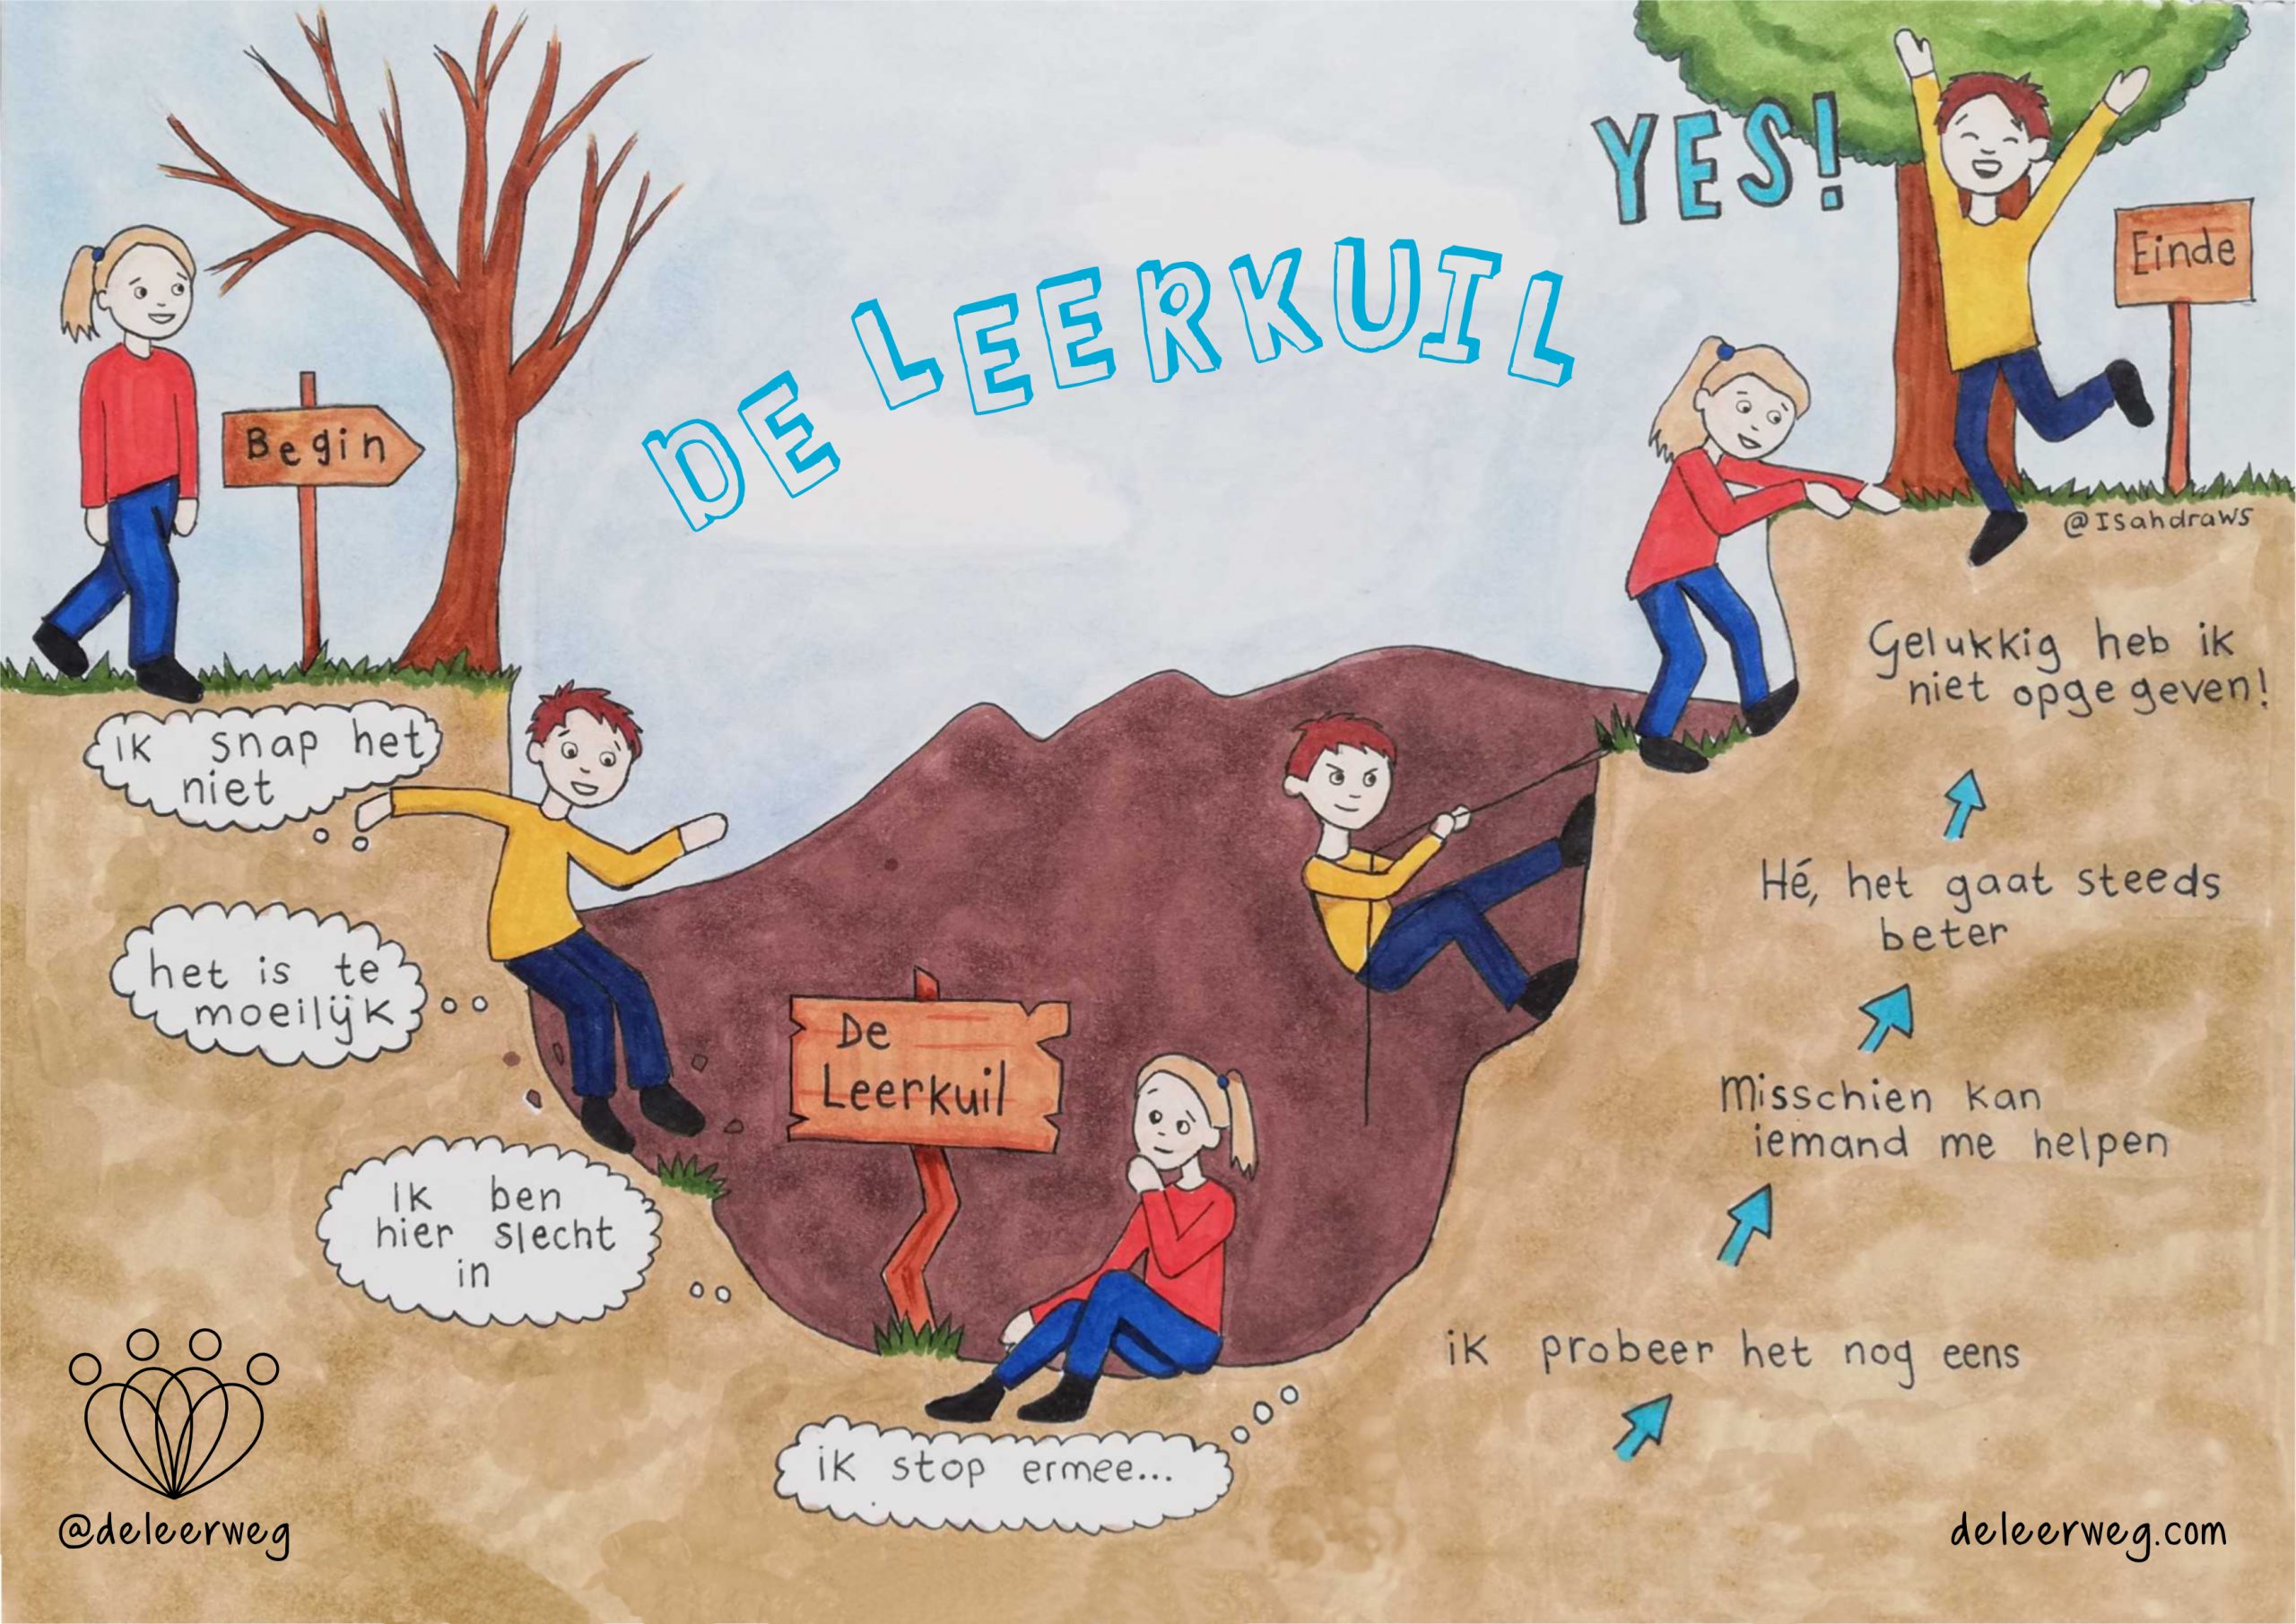 YES!
DE LEERKUIL
Einde
Begin
@Isahdraws
Gelukkig heb ik
niet opgegeven!
ik snap het
niet
Hé, het gaat steeds
beter
het is te
moeilijk
De
Leerkuil
Misschien kan
iemand me helpen
Ik ben
hier slecht
in
ik probeer het nog eens
ik stop ermee...
@deleerweg
deleerweg.com